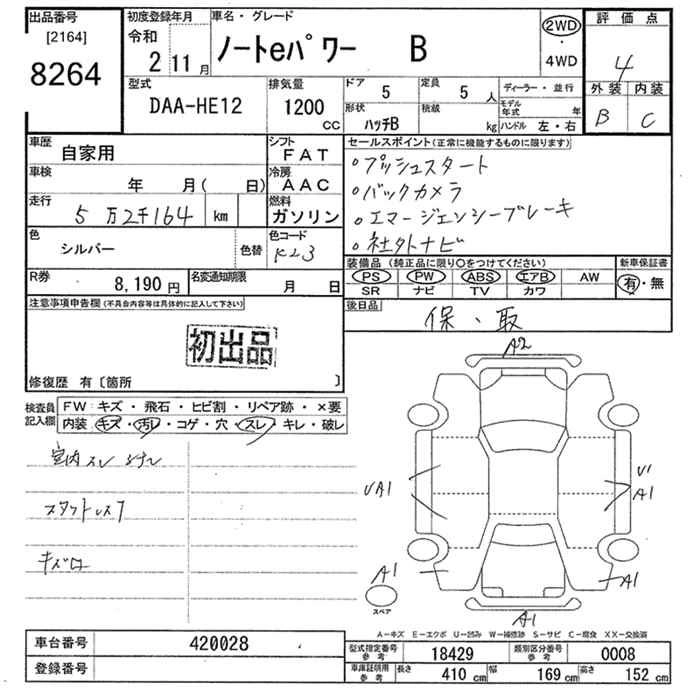 出品番号
[2164]
8264
初度登録年月
令和
2 11 月
車名・グレード
ノートeパワー B
2WD
・
4WD
評価点
4
外装 内装
B C
型式
DAA-HE12
排気量
1200
cc
ドア 5
定員 5 人
ディーラー・並行
モデル年式 年
形状 ハッチB
積載 kg
ハンドル 左・右
車歴
自家用
シフト
FAT
車検
年 月( 日)
冷房
AAC
走行
5万2千164 km
燃料
ガソリン
色
シルバー
色替
色コード
K23
R券
8,190 円
名変通知期限
月 日
セールスポイント(正常に機能するものに限ります)
。プッシュスタート
。バックカメラ
。エマージェンシーブレーキ
。社外ナビ
装備品 (純正品に限り○をつけてください)
新車保証書
PS PW ABS エアB AW
SR ナビ TV カワ
有・無
後日品
保、取
注意事項申告欄(不具合内容等は具体的に記入して下さい)
初出品
修復歴 有〔箇所 〕
検査員記入欄
FW:キズ・飛石・ヒビ割・リペア跡・×要
内装:キズ・汚レ・コゲ・穴・スレ・キレ・破レ
室内スレ
キズ
A2
UA1
U1
A1
A1
A1
A1
スペア
A-キズ E-エクボ U-凹み W-補修跡 S-サビ C-腐食 XX-交換済
車台番号
420028
登録番号
型式指定番号 参考
18429
類別区分番号 参考
0008
車庫証明用 参考
長さ 410 cm
幅 169 cm
高さ 152 cm